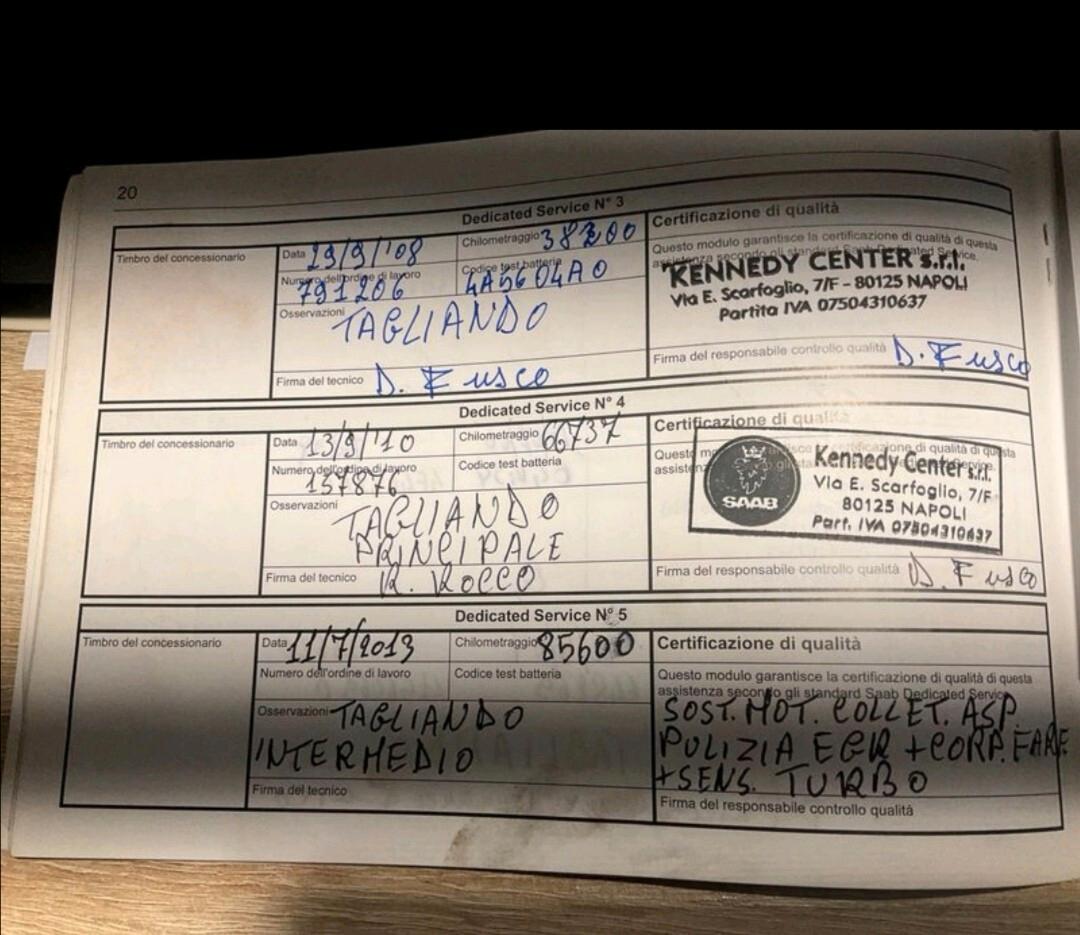 20
Dedicated Service N° 3
Timbro del concessionario
Data 19/9/'08
Chilometraggio 38200
Numero dell'ordine di lavoro 791206
Codice test batteria 4A5604A0
Osservazioni TAGLIANDO
Firma del tecnico D. Fusco
Certificazione di qualità
Questo modulo garantisce la certificazione di qualità di questa
assistenza secondo gli standard Saab Dedicated Service.
KENNEDY CENTER s.r.l.
Via E. Scarfoglio, 7/F - 80125 NAPOLI
Partita IVA 07504310637
Firma del responsabile controllo qualità D. Fusco
Dedicated Service N° 4
Timbro del concessionario
Data 13/9/'10
Chilometraggio 66737
Numero dell'ordine di lavoro 137876
Codice test batteria
Osservazioni TAGLIANDO
PRINCIPALE
Firma del tecnico R. Rocco
Certificazione di qualità
Questo
certificazione di qualità di questa
assistenz
SAAB
Kennedy Center s.r.l.
Via E. Scarfoglio, 7/F
80125 NAPOLI
Part. IVA 07504310637
Firma del responsabile controllo qualità D. Fusco
Dedicated Service N° 5
Timbro del concessionario
Data 11/7/2013
Chilometraggio 85600
Numero dell'ordine di lavoro
Codice test batteria
Osservazioni TAGLIANDO
INTERMEDIO
Firma del tecnico
Certificazione di qualità
Questo modulo garantisce la certificazione di qualità di questa
assistenza secondo gli standard Saab Dedicated Service
SOST. MOT. COLLET. ASP.
PULIZIA EGR + CORP. FARF.
+ SENS. TURBO
Firma del responsabile controllo qualità